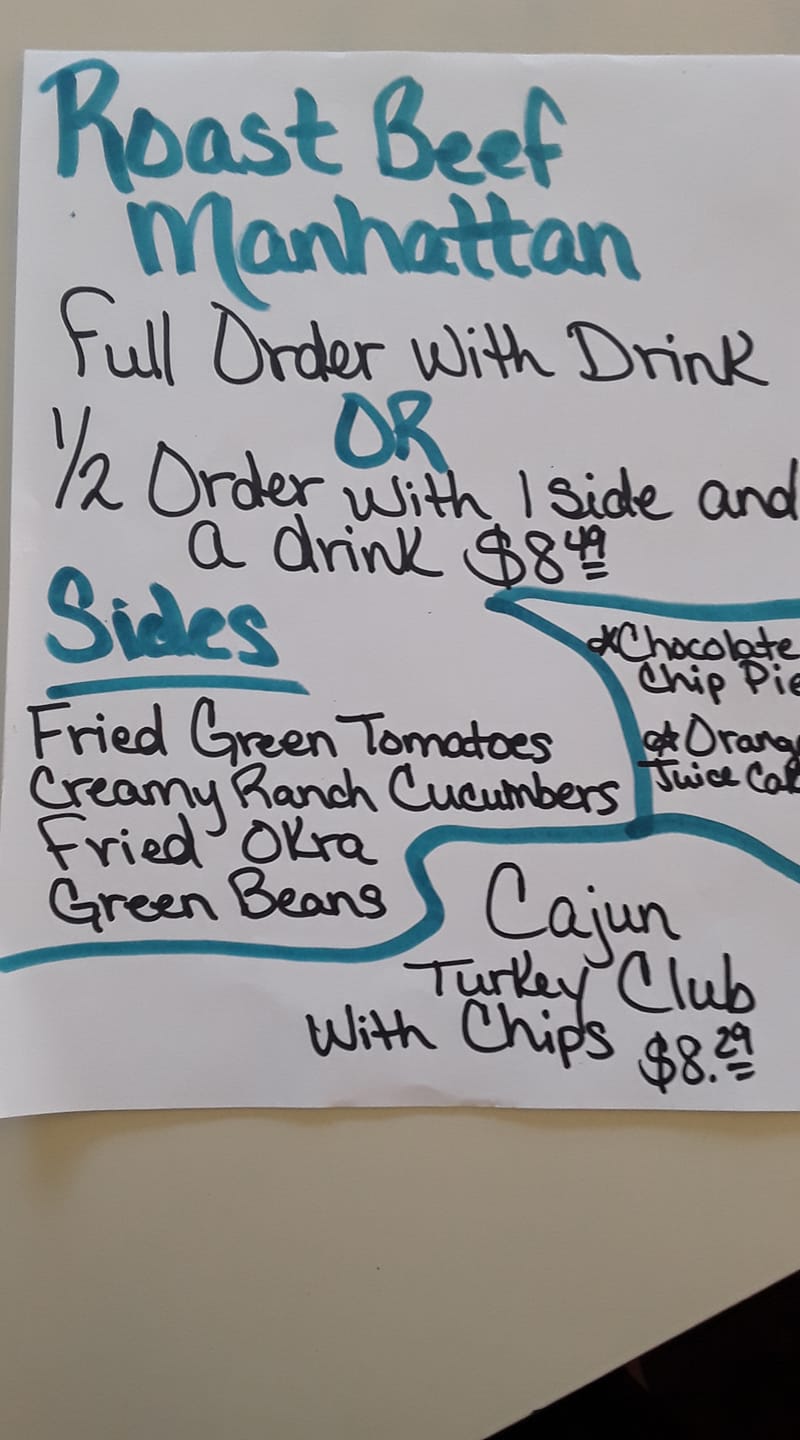 Roast Beef
Manhattan
Full Order With Drink
OR
1/2 Order with 1 side and
a drink $8 49
Sides
Fried Green Tomatoes
Creamy Ranch Cucumbers
Fried Okra
Green Beans
*Chocolate
Chip Pie
*Orang
Juice Ca
Cajun
Turkey Club
With Chips $8.29